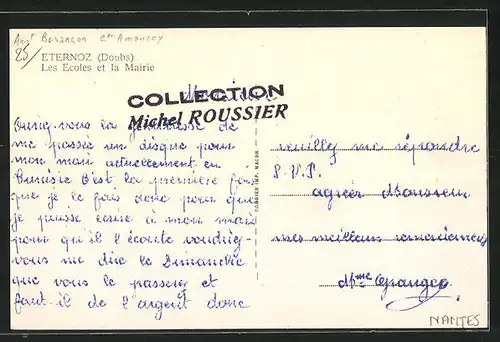 Arrt Besançon ctn Amancey
25/ ETERNOZ (Doubs)
Les Ecoles et la Mairie
Monsieur
COLLECTION
Michel ROUSSIER
Auriez-vous la gentillesse de
me passer un disque pour
mon mari actuellement en
Tunisie C'est la première fois
que je le fais donc pour que
je puisse écrire à mon mari
pour qu'il l'écoute voudriez-
vous me dire le Dimanche
que vous le passerez et
faut-il de l'argent donc
COMBIER IMP. MACON
veuillez me répondre
S.V.P.
agréer Monsieur
mes meilleurs remerciements
Mme
NANTES